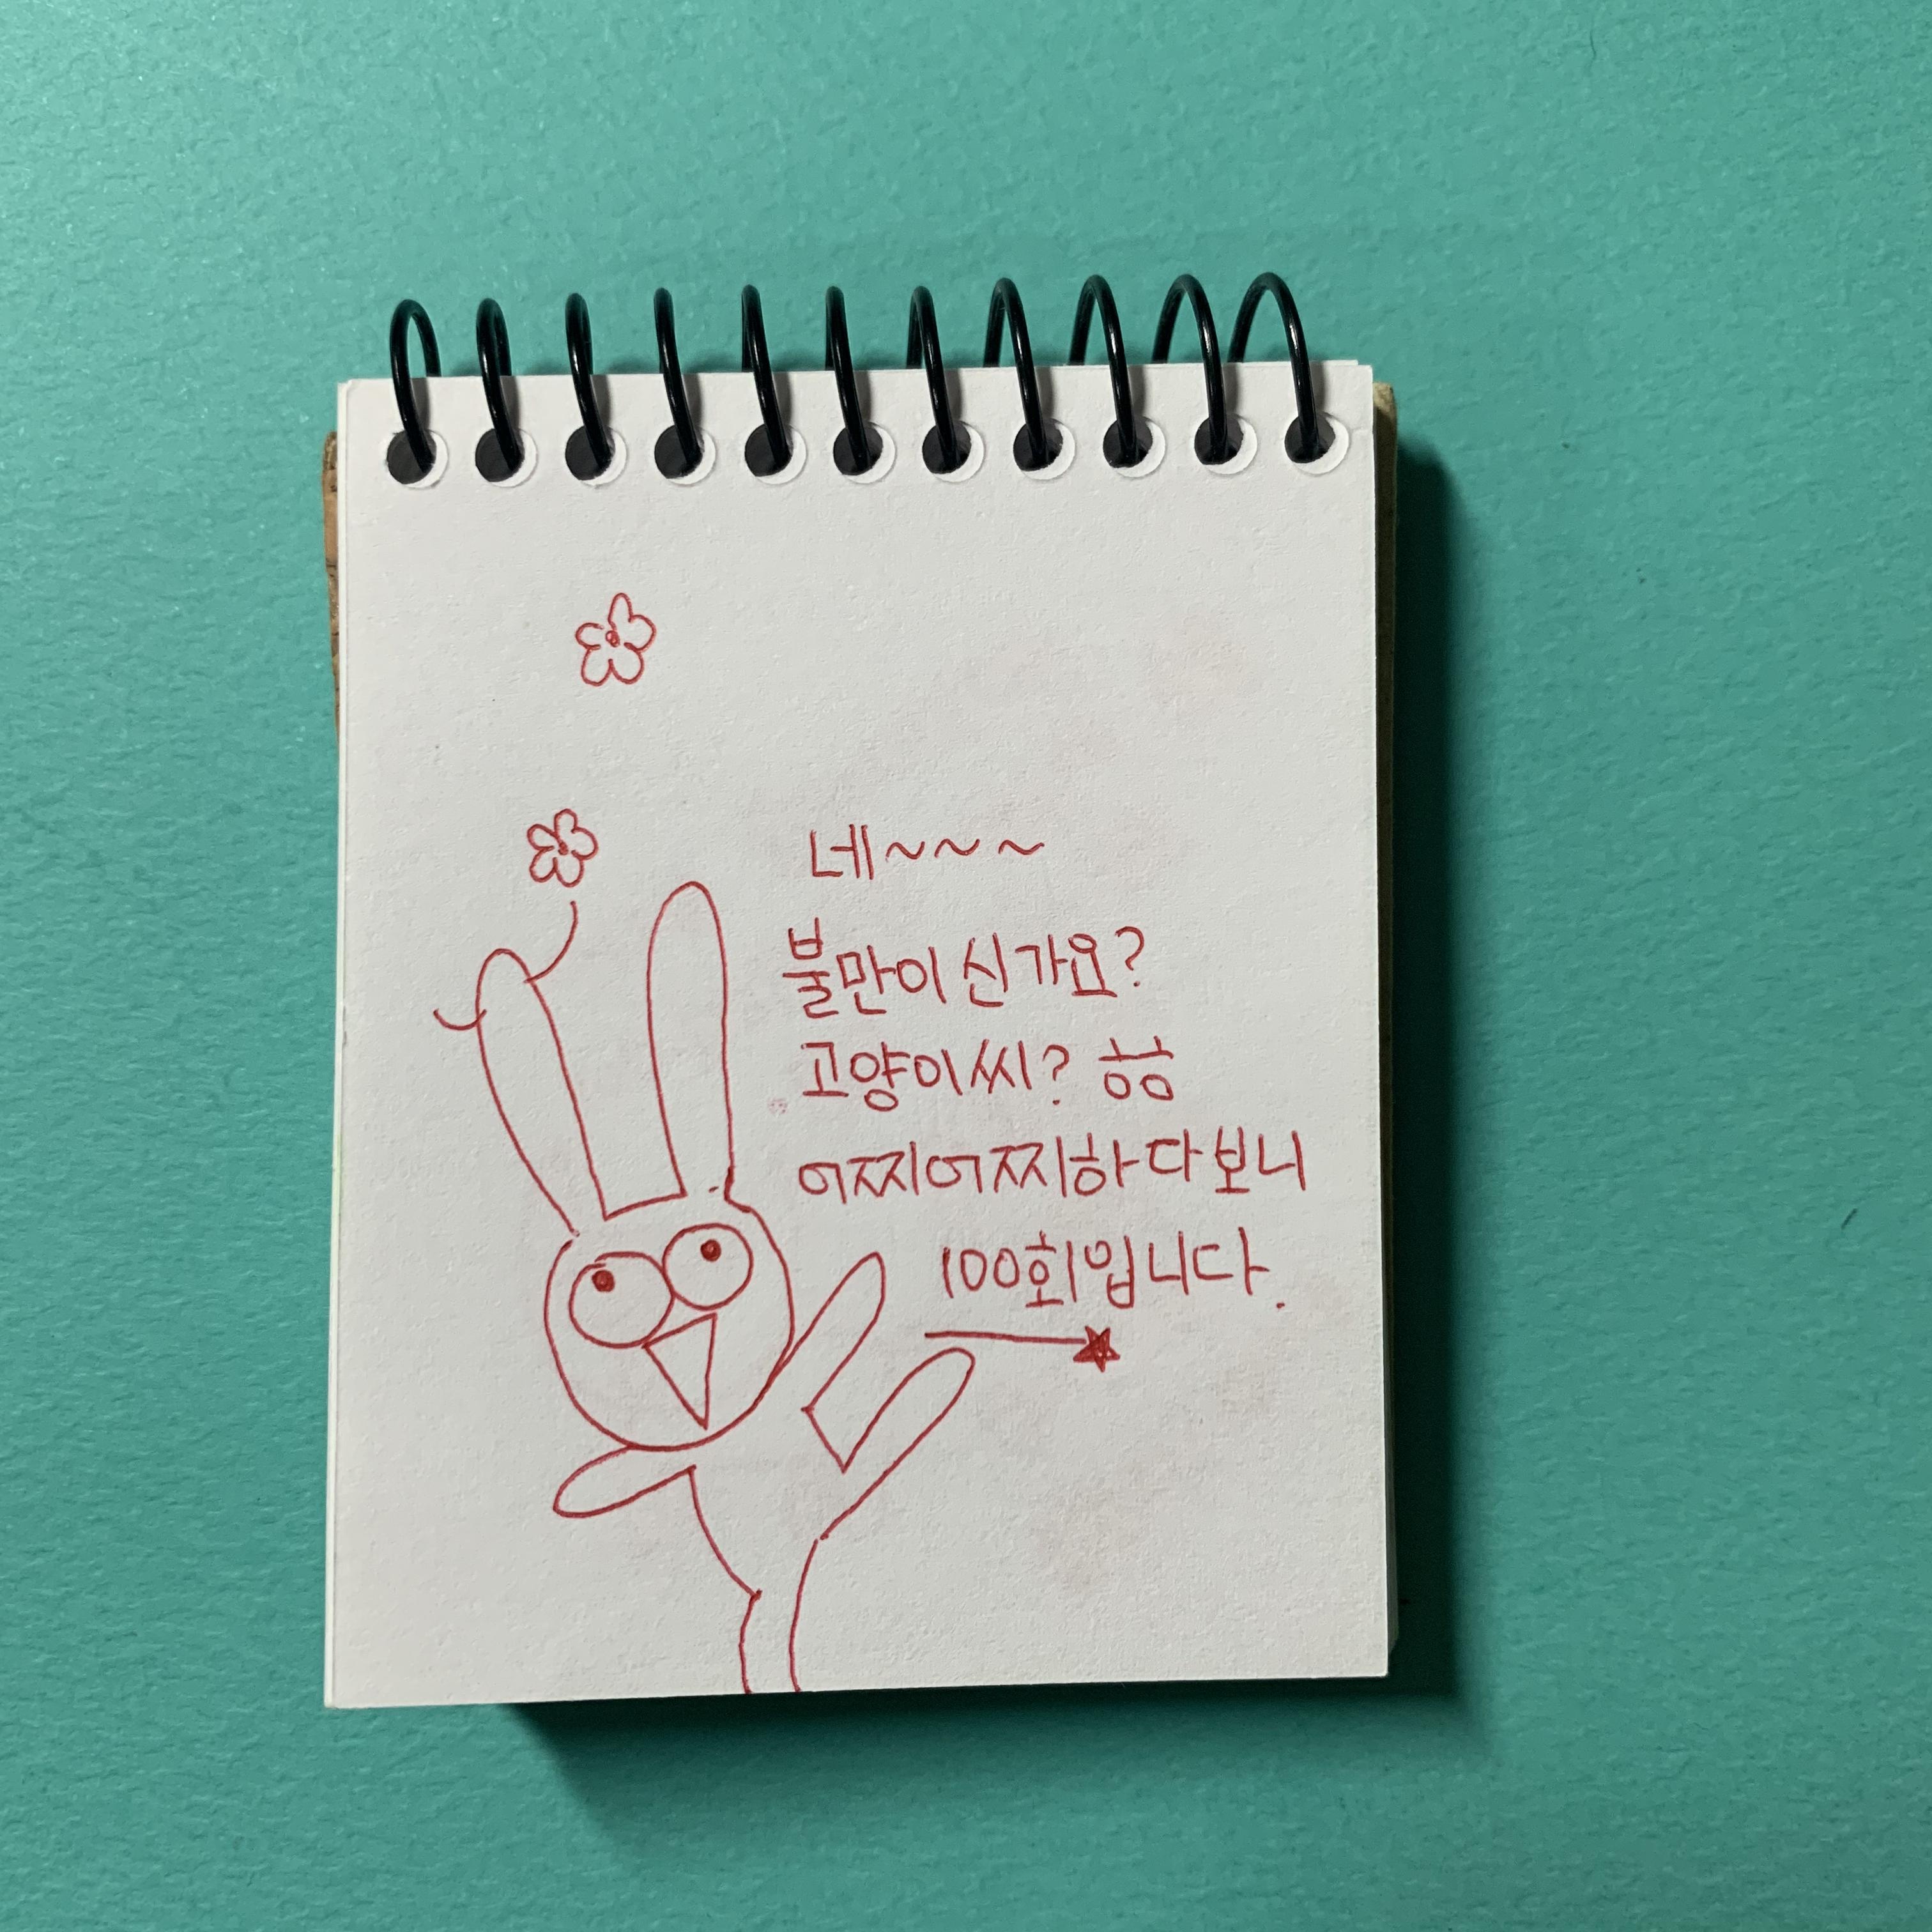 네~~~
불만이신가요?
고양이씨? ㅎㅎ
어찌어찌하다보니
100회입니다.